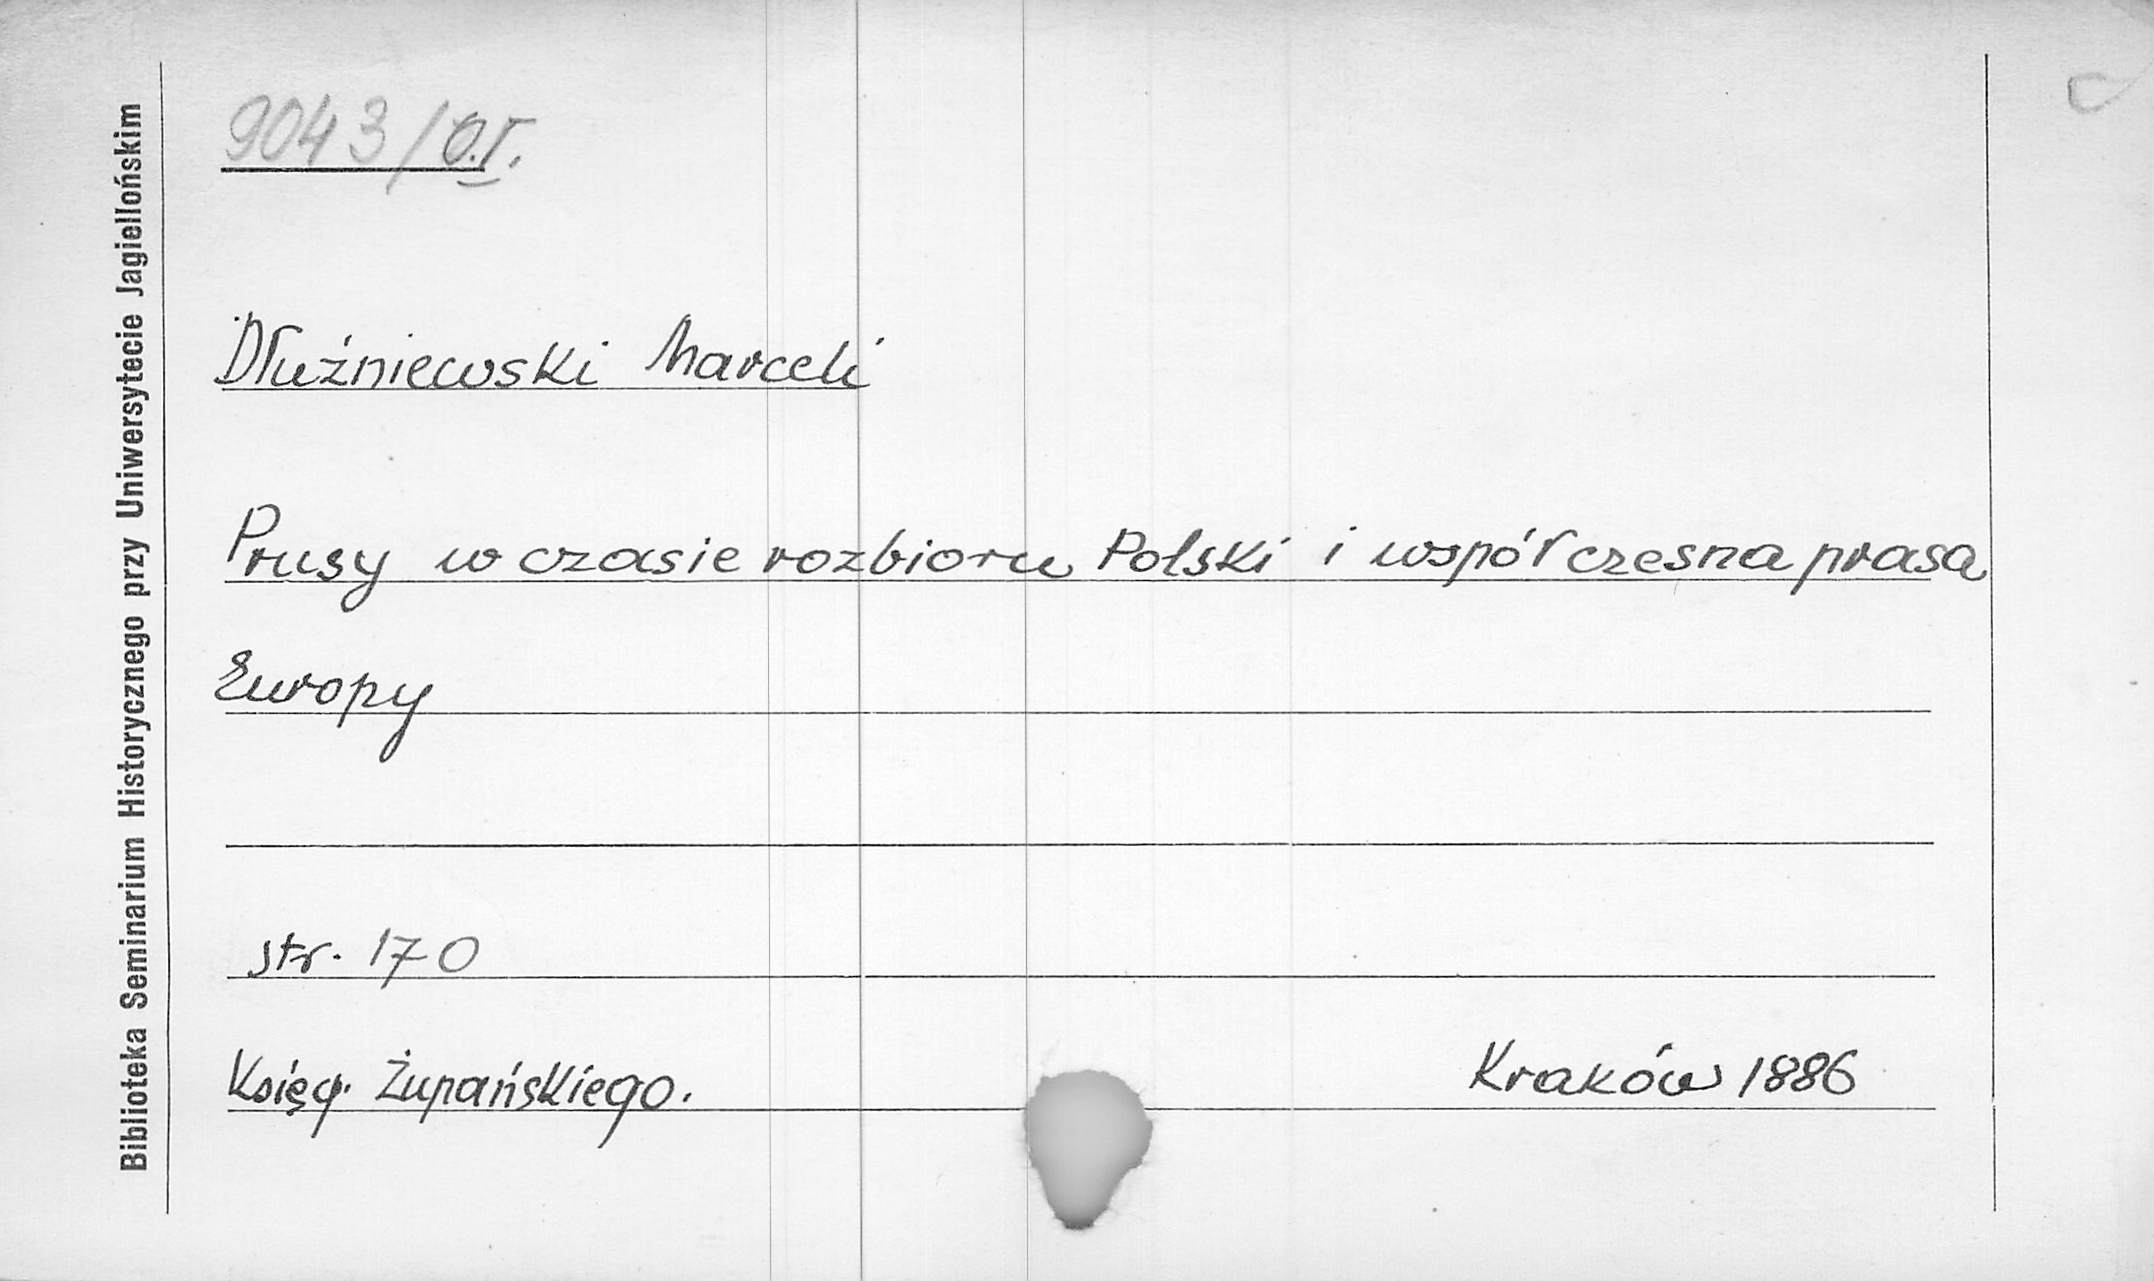 Biblioteka Seminarium Historycznego przy Uniwersytecie Jagiellońskim
9043/O.I.
Dłużniewski Marceli
Prusy w czasie rozbioru Polski i współczesna prasa
Europy
str. 170
Księg. Żupańskiego.
Kraków 1886